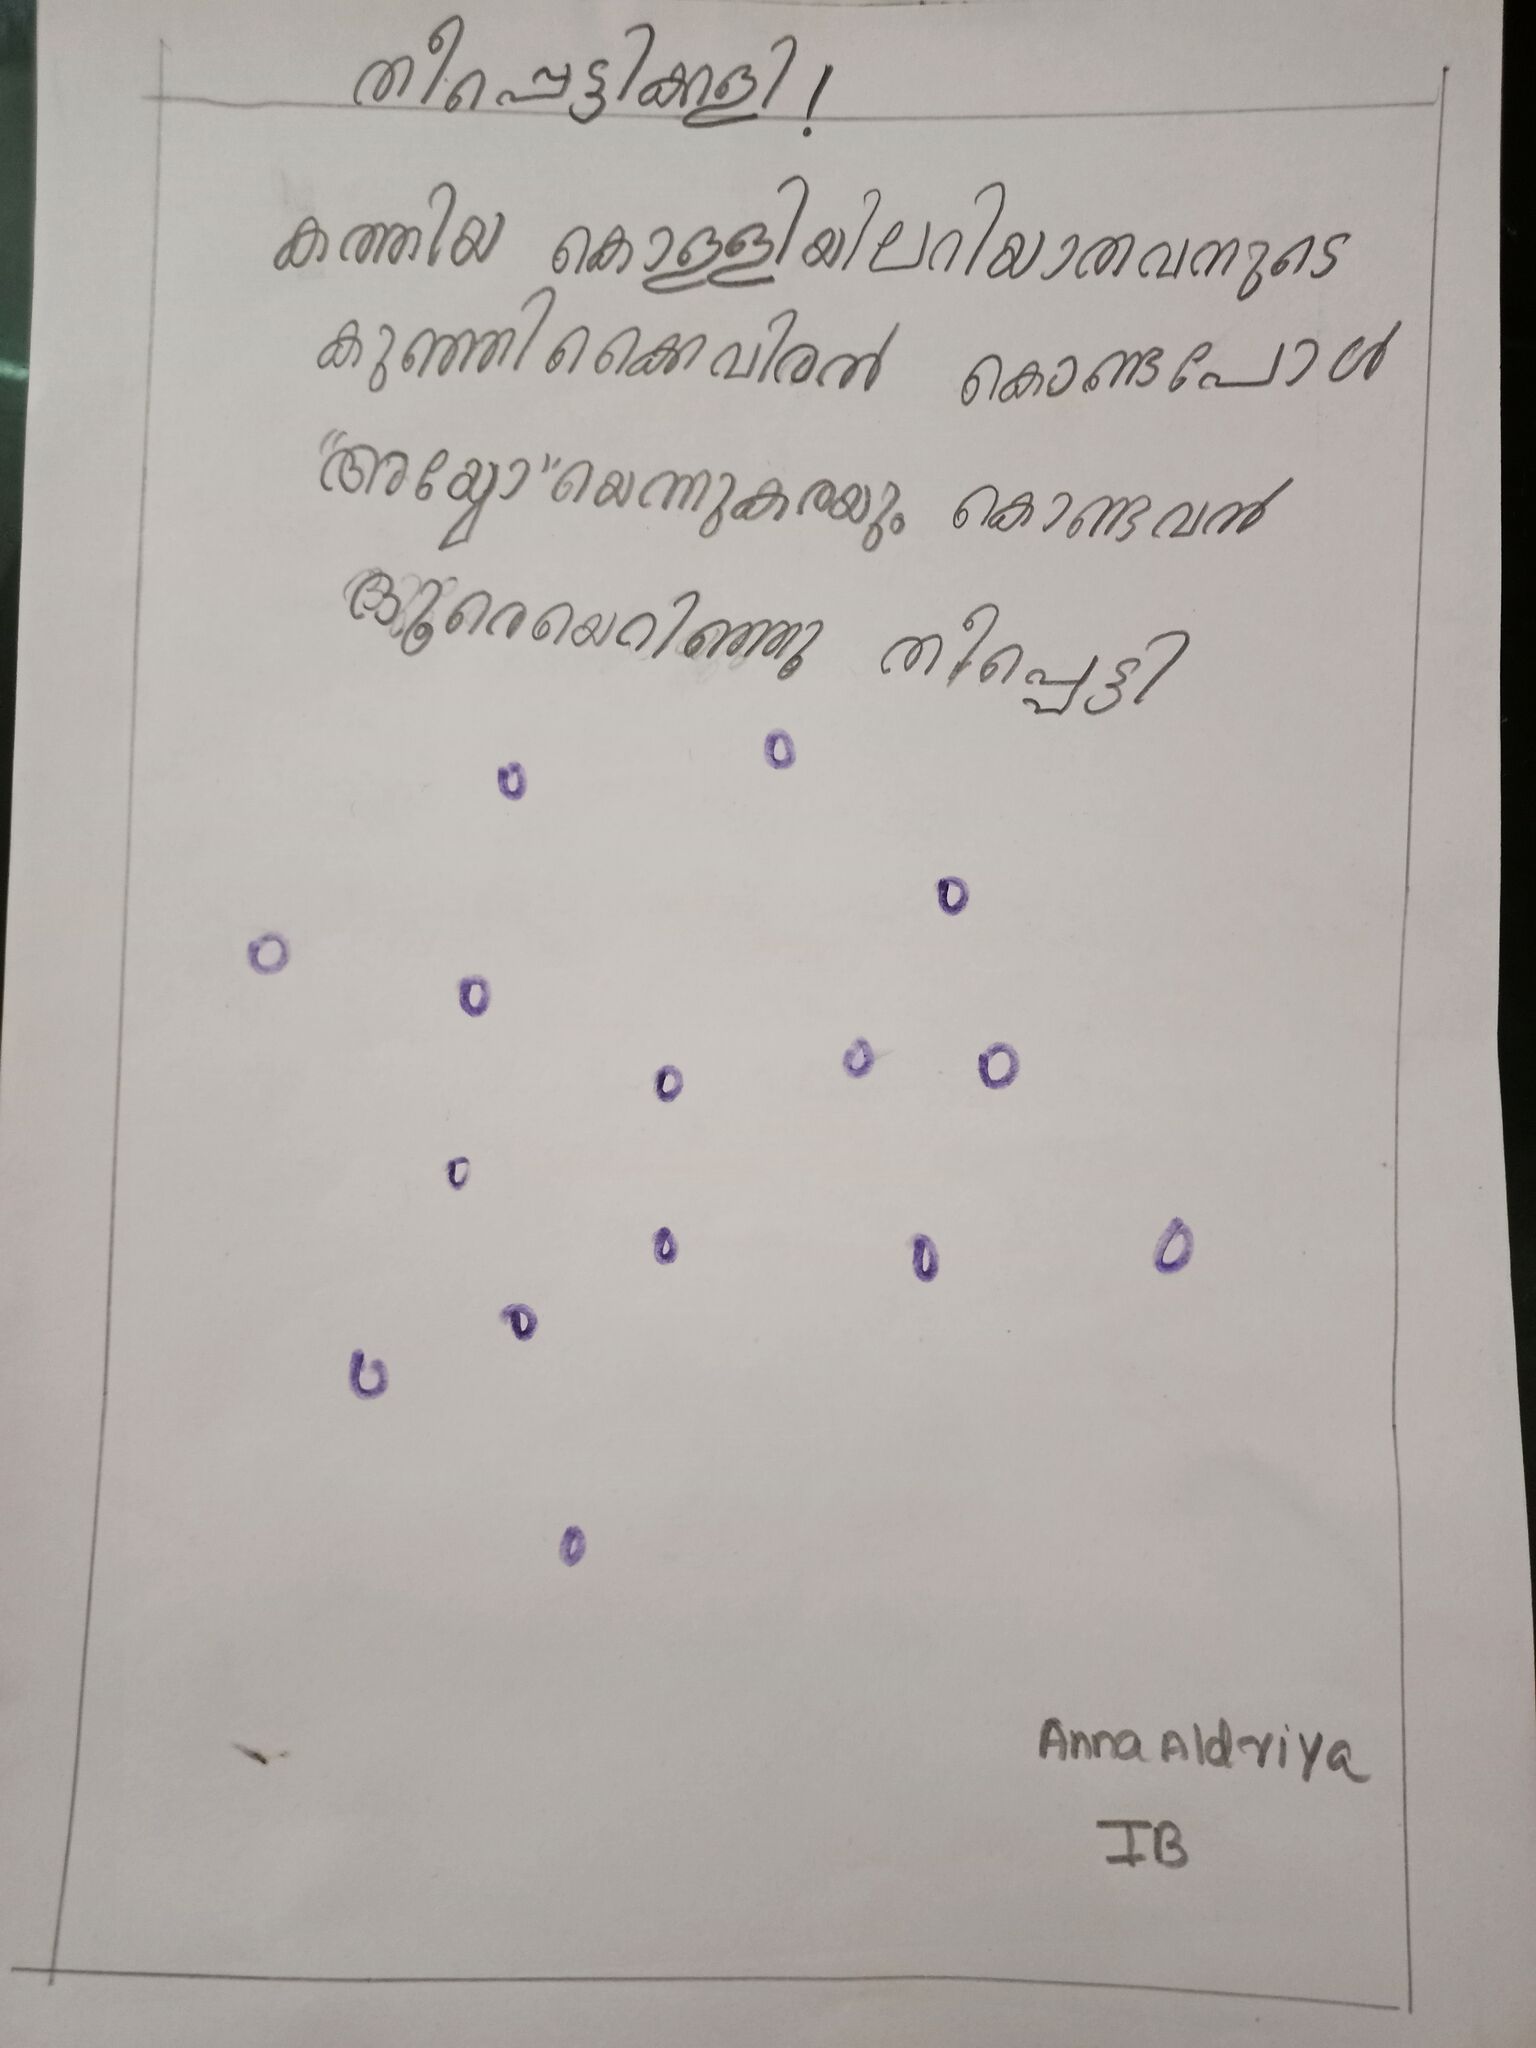 തീപ്പെട്ടിക്കളി!
കത്തിയ കൊള്ളിയിലറിയാതവനുടെ
കുഞ്ഞിക്കൈവിരൽ കൊണ്ടപോൾ
"അയ്യോ" യെന്നുകരയും കൊണ്ടവൻ
ദൂരെയെറിഞ്ഞു തീപ്പെട്ടി
Anna Aldriya
IB